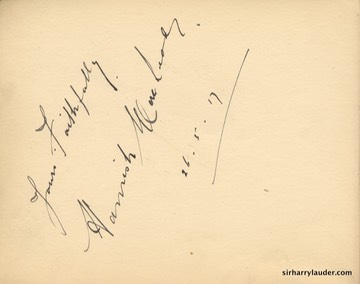 Yours Faithfully.
Hamish MacLeod
26. 5. 17
sirharrylauder.com